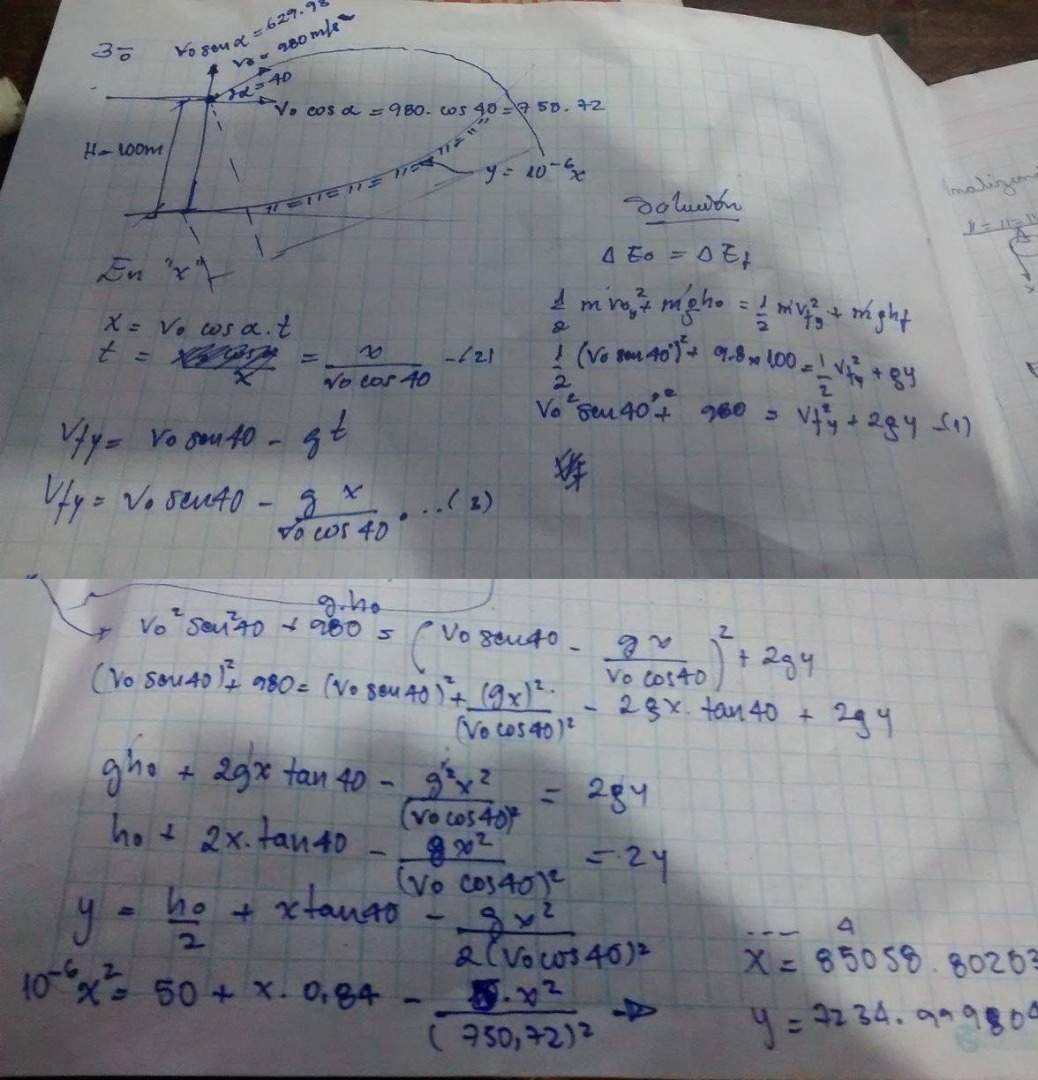 3º
V₀ sen α = 629.93
V₀ = 980 m/s²
α = 40
V₀ cos α = 980. cos 40 = 750.72
H = 100m
y = 10⁻⁶x
En "x"
x = V₀ cos α . t
t = = x / V₀ cos 40 - (2)
Vfy = V₀ sen 40 - gt
Vfy = V₀ sen 40 - g x / V₀ cos 40 . ..(3)
Solución
Δ E₀ = Δ E_f
1/2 m V₀y² + m g h₀ = 1/2 m Vfy² + m g hf
1/2 (V₀ sen 40°)² + 9.8 x 100 = 1/2 Vfy² + gy
V₀² sen 40°² + 980 = Vfy² + 2gy -(1)
g.h₀
V₀² sen² 40 + 980 = (V₀ sen 40 - g x / V₀ cos 40)² + 2gy
(V₀ sen 40)² + 980 = (V₀ sen 40)² + (gx)² / (V₀ cos 40)² - 2gx. tan 40 + 2gy
gh₀ + 2gx tan 40 - g²x² / (V₀ cos 40)² = 2gy
h₀ + 2x. tan 40 - g x² / (V₀ cos 40)² = 2y
y = h₀/2 + x tan 40 - g x² / 2(V₀ cos 40)²
10⁻⁶x² = 50 + x. 0,84 - . x² / (750,72)²
x = 85058.80253
y = 7234.999804